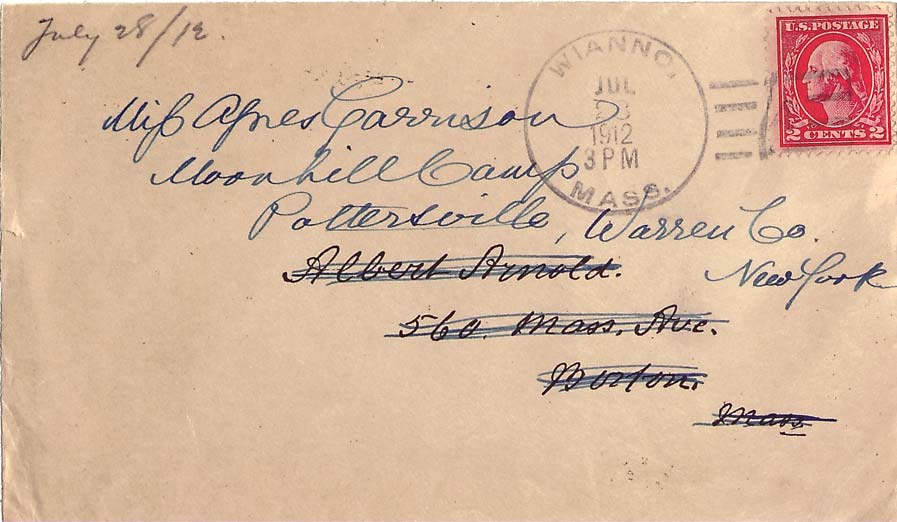 July 28/12.
WIANNO,
JUL
28
1912
3 PM
MASS.
U.S. POSTAGE
2 CENTS 2
Miss Agnes Garrison
Moonhill Camp
Pottersville, Warren Co.
New York
Albert Arnold.
560. Mass. Ave.
Boston.
Mass